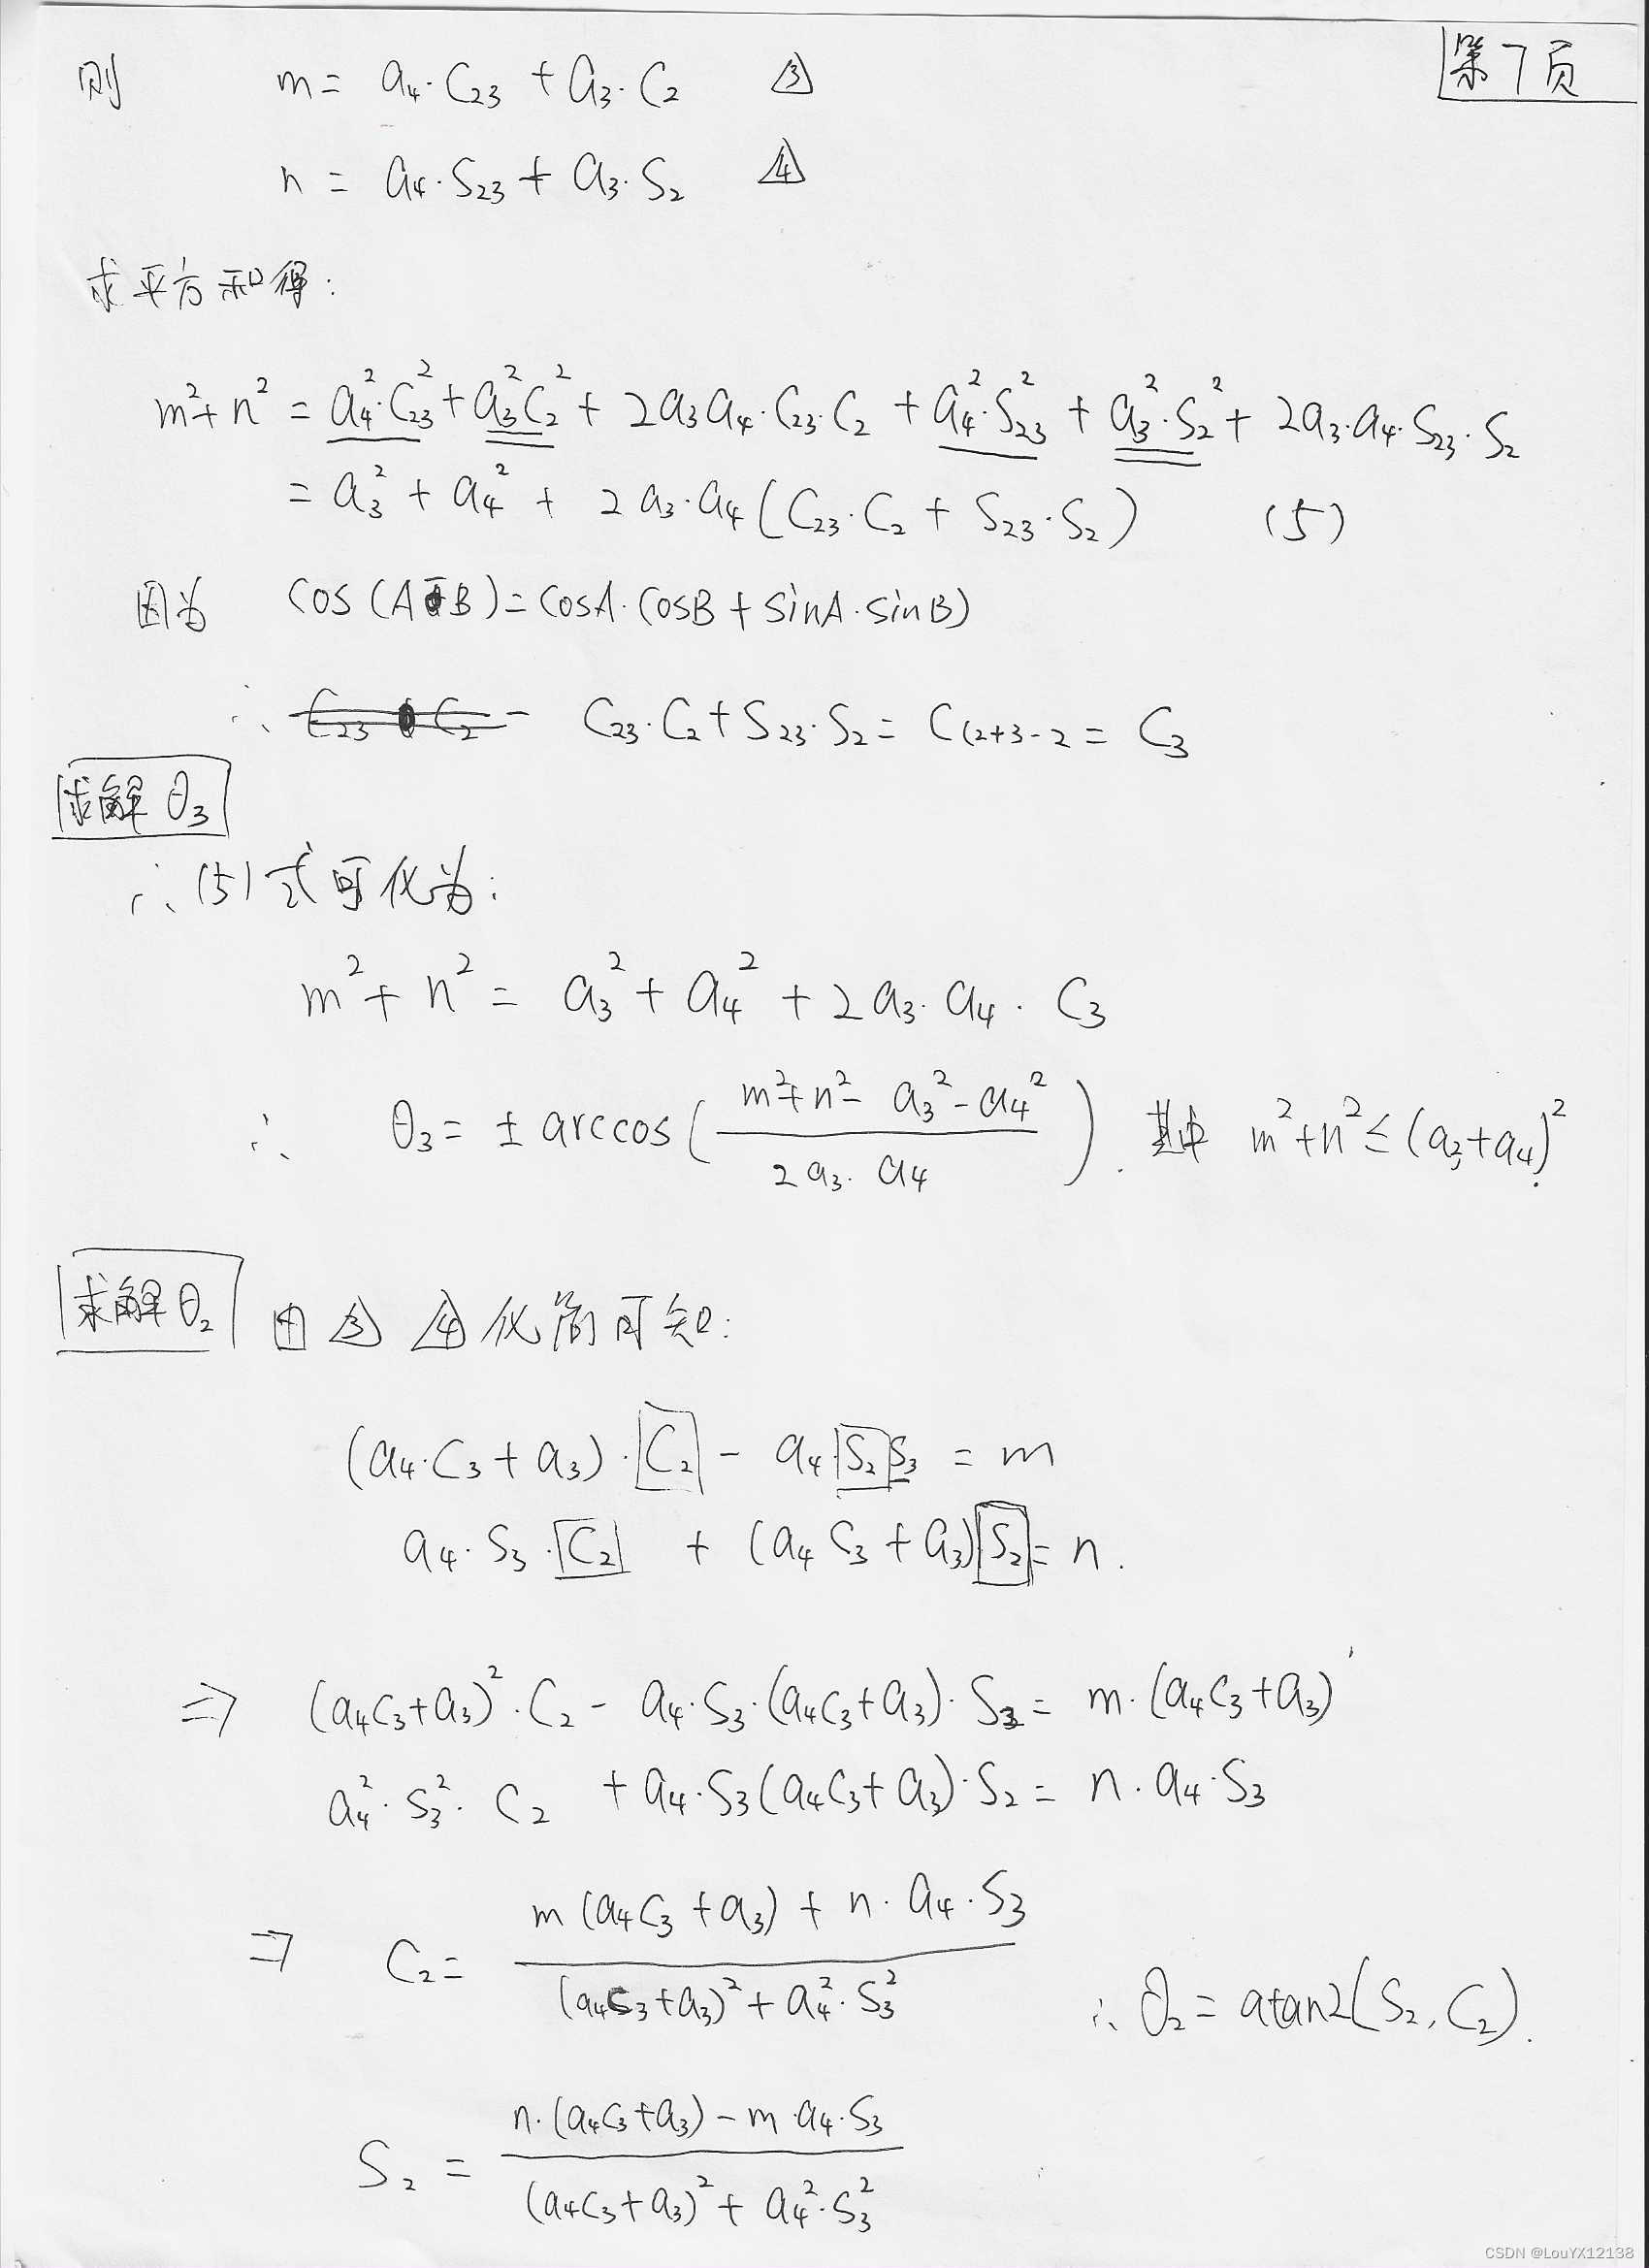 第7页
则 m = a₄·C₂₃ + a₃·C₂ ③
n = a₄·S₂₃ + a₃·S₂ ④
求平方和得:
m²+n² = a₄²·C₂₃² + a₃²C₂² + 2a₃a₄·C₂₃·C₂ + a₄²·S₂₃² + a₃²·S₂² + 2a₃·a₄·S₂₃·S₂
= a₃² + a₄² + 2a₃·a₄(C₂₃·C₂ + S₂₃·S₂) (5)
因为 cos(A-B)=cosA·cosB+sinA·sinB)
∴ C₂₃·C₂+S₂₃·S₂ = C(2+3-2 = C₃
求解θ₃
∴(5)式可化为:
m²+n² = a₃²+a₄²+2a₃·a₄·C₃
∴ θ₃ = ± arccos( (m²+n²-a₃²-a₄²) / (2a₃·a₄) ). 其中 m²+n² ≤ (a₃+a₄)²
求解θ₂ 由 ③ ④ 化简可知:
(a₄·C₃+a₃)·C₂ - a₄·S₂S₃ = m
a₄·S₃·C₂ + (a₄C₃+a₃)S₂ = n.
⇒ (a₄C₃+a₃)²·C₂ - a₄·S₃·(a₄C₃+a₃)·S₂ = m·(a₄C₃+a₃)
a₄²·S₃²·C₂ + a₄·S₃(a₄C₃+a₃)·S₂ = n·a₄·S₃
⇒ C₂ = (m(a₄C₃+a₃)+n·a₄·S₃) / ((a₄C₃+a₃)²+a₄²·S₃²)
∴ θ₂ = atan2(S₂,C₂).
S₂ = (n·(a₄C₃+a₃)-m·a₄·S₃) / ((a₄C₃+a₃)²+a₄²·S₃²)
CSDN @LouYX12138